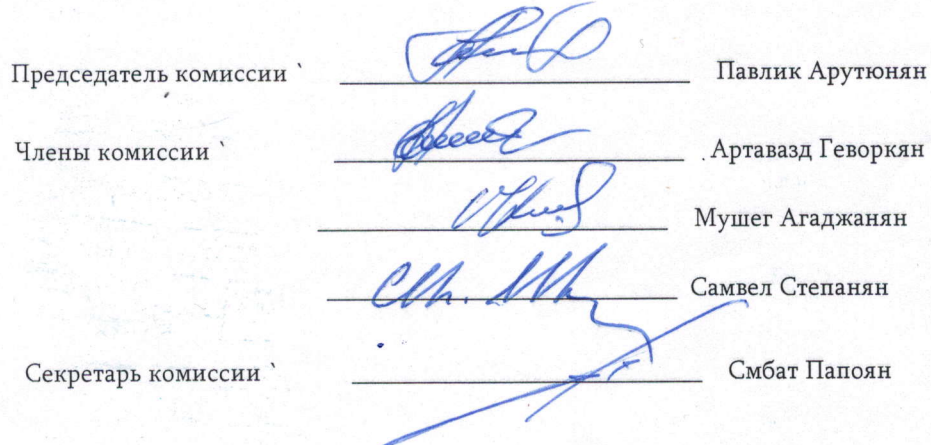 Председатель комиссии ՝ Павлик Арутюнян
Члены комиссии ՝ Артавазд Геворкян
Мушег Агаджанян
Самвел Степанян
Секретарь комиссии ՝ Смбат Папоян